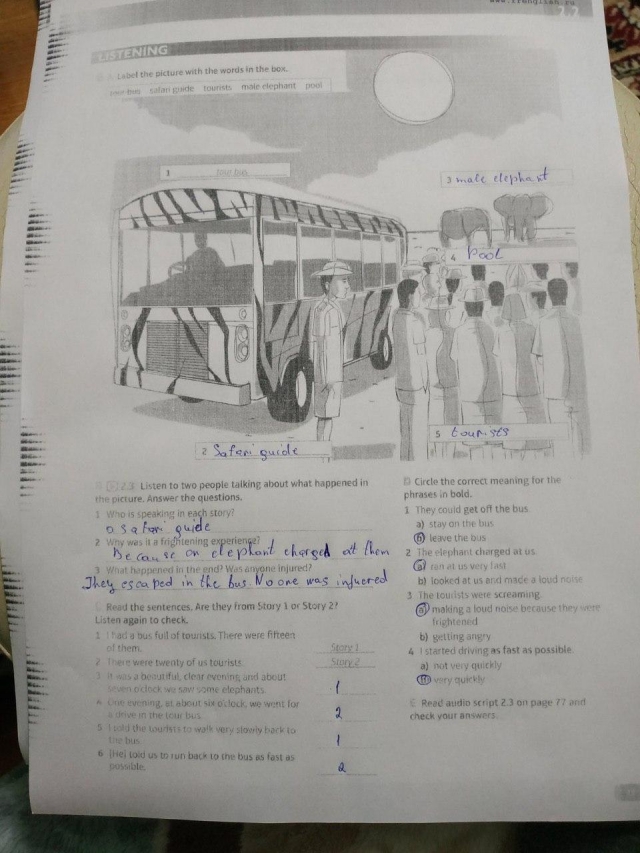 7.2
LISTENING
Label the picture with the words in the box.
tour bus safari guide tourists male elephant pool
1 tour bus
3 male elephant
4 Pool
2 Safari guide
5 tourists
B 2.3 Listen to two people talking about what happened in
the picture. Answer the questions.
1 Who is speaking in each story?
a safari guide
2 Why was it a frightening experience?
Because an elephant charged at them
3 What happened in the end? Was anyone injured?
They escaped in the bus. No one was injuered
C Read the sentences. Are they from Story 1 or Story 2?
Listen again to check.
1 I had a bus full of tourists. There were fifteen
of them.
Story 1
2 There were twenty of us tourists.
Story 2
3 It was a beautiful, clear evening and about
seven o'clock we saw some elephants.
1
4 One evening, at about six o'clock, we went for
a drive in the tour bus.
2
5 I told the tourists to walk very slowly back to
the bus.
1
6 [He] told us to run back to the bus as fast as
possible.
2
D Circle the correct meaning for the
phrases in bold.
1 They could get off the bus.
a) stay on the bus
b) leave the bus
2 The elephant charged at us.
a) ran at us very fast
b) looked at us and made a loud noise
3 The tourists were screaming.
a) making a loud noise because they were
frightened
b) getting angry
4 I started driving as fast as possible.
a) not very quickly
b) very quickly
E Read audio script 2.3 on page 77 and
check your answers.